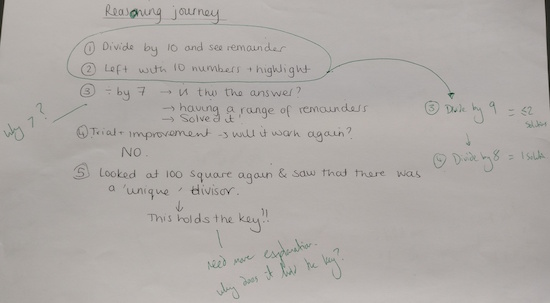 Reasoning journey
① Divide by 10 and see remainder
② Left with 10 numbers + highlight
③ ÷ by 7 → is this the answer?
→ having a range of remainders
→ Solved it
why 7?
④ Trial + improvement → will it work again?
NO.
⑤ Looked at 100 square again & saw that there was
a 'unique' divisor.
↓
This holds the key!!
need more explanation.
why does it hold the key?
③ Divide by 9 = ≤2
↓
④ Divide by 8 = 1